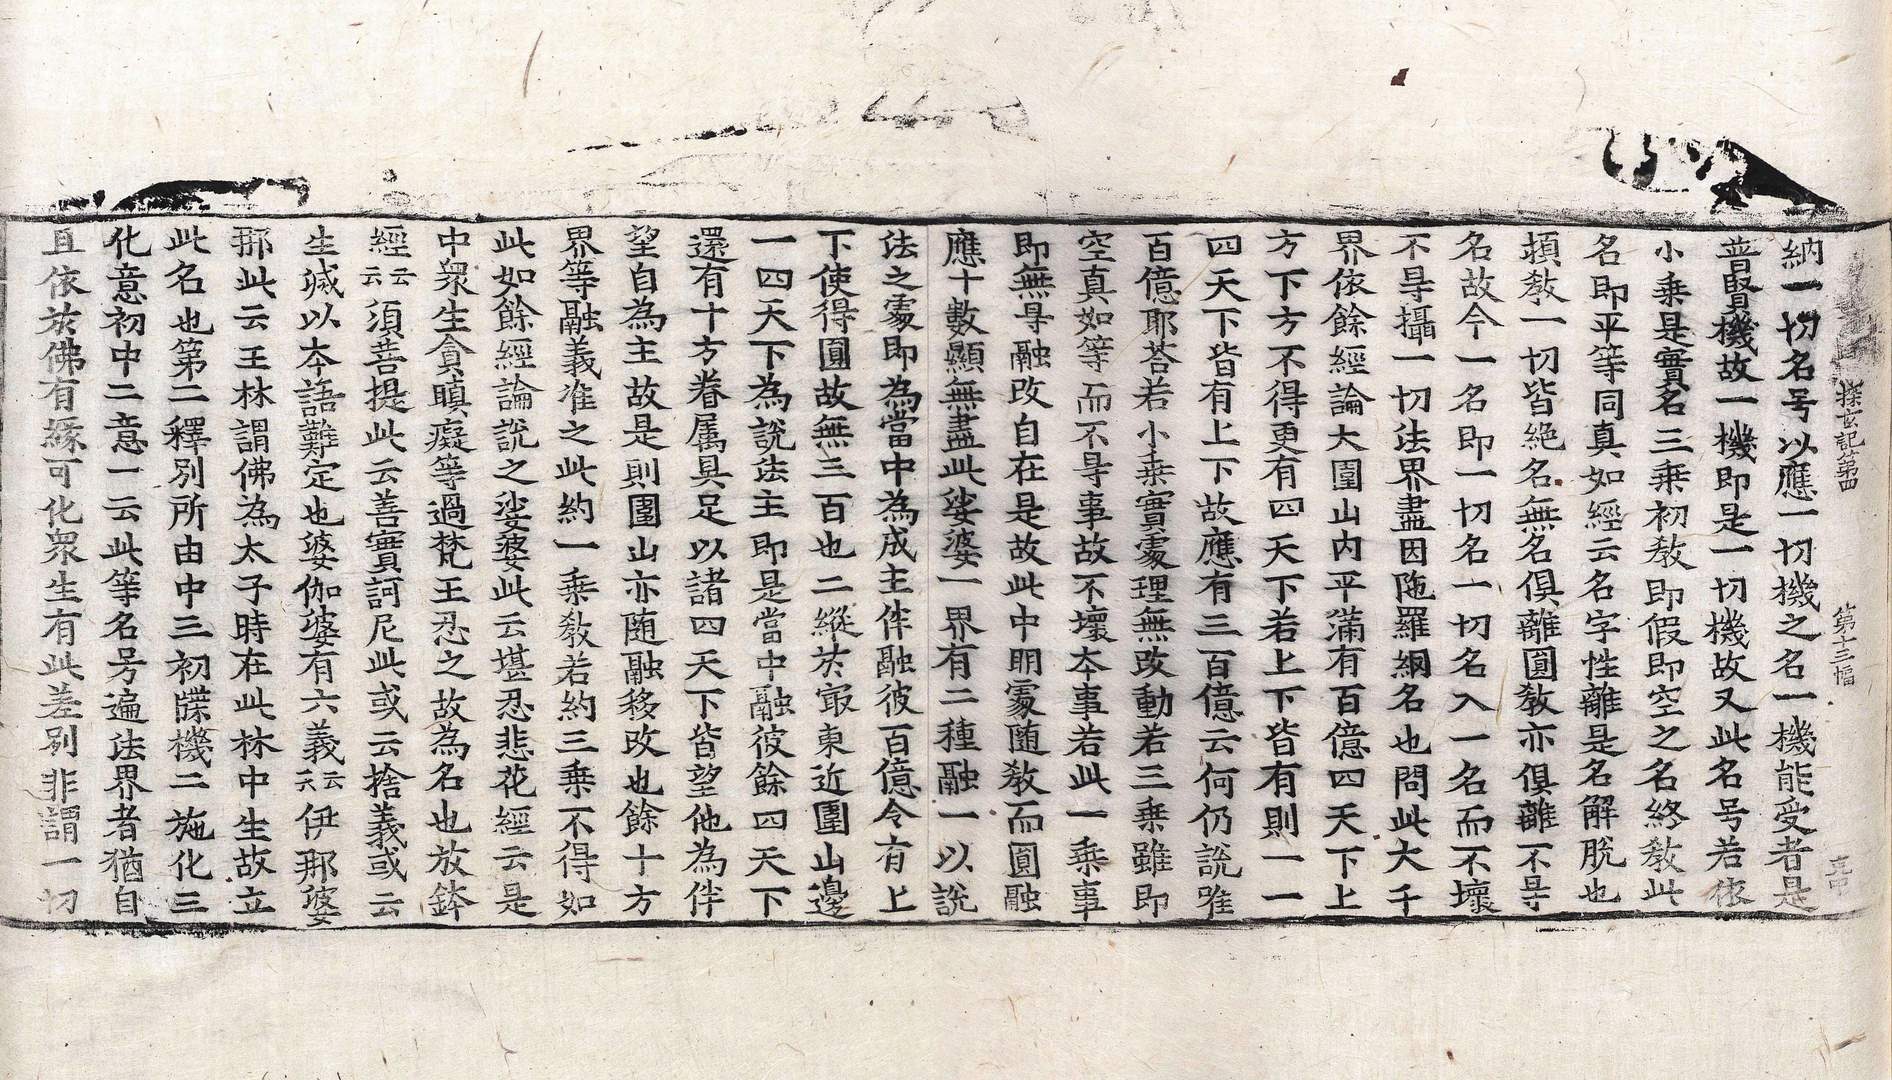 探玄記第四　第十三幅　
納一切名号以應一切機之名一機能受者是
普賢機故一機即是一切機故又此名号若依
小乗是實名三乗初教即假即空之名終教此
名即平等同真如經云名字性離是名解脫也
頓教一切皆絶名無名俱離圓教亦俱離不㝵
名故今一名即一切名一切名入一名而不壞
不㝵攝一切法界盡因陁羅網名也問此大千
界依餘經論大圍山內平滿有百億四天下上
方下方不得更有四天下若上下皆有則一一
四天下皆有上下故應有三百億云何仍說唯
百億耶荅若小乗實處理無改動若三乗雖即
空真如等而不㝵事故不壞夲事若此一乗事
即無㝵融改自在是故此中明處随教而圓融
應十數顯無盡此娑婆一界有二種融一以說
法之處即為當中為成主伴融彼百億令有上
下使得圓故無三百也二縱於㝡東近圍山邊
一四天下為說法主即是當中融彼餘四天下
還有十方眷属具足以諸四天下皆望他為伴
望自為主故是則圍山亦随融移改也餘十方
界等融義准之此約一乗教若約三乗不得如
此如餘經論說之娑婆此云堪忍悲花經云是
中衆生貪瞋癡等過梵王忍之故為名也放鉢
經云云須菩提此云善實訶尼此或云捨義或云
生滅以夲語難定也婆伽婆有六義云云伊那婆
那此云王林謂佛為太子時在此林中生故立
此名也第二釋別所由中三初牒機二施化三
化意初中二意一云此等名号遍法界者猶自
且依於佛有緣可化衆生有此差别非謂一切